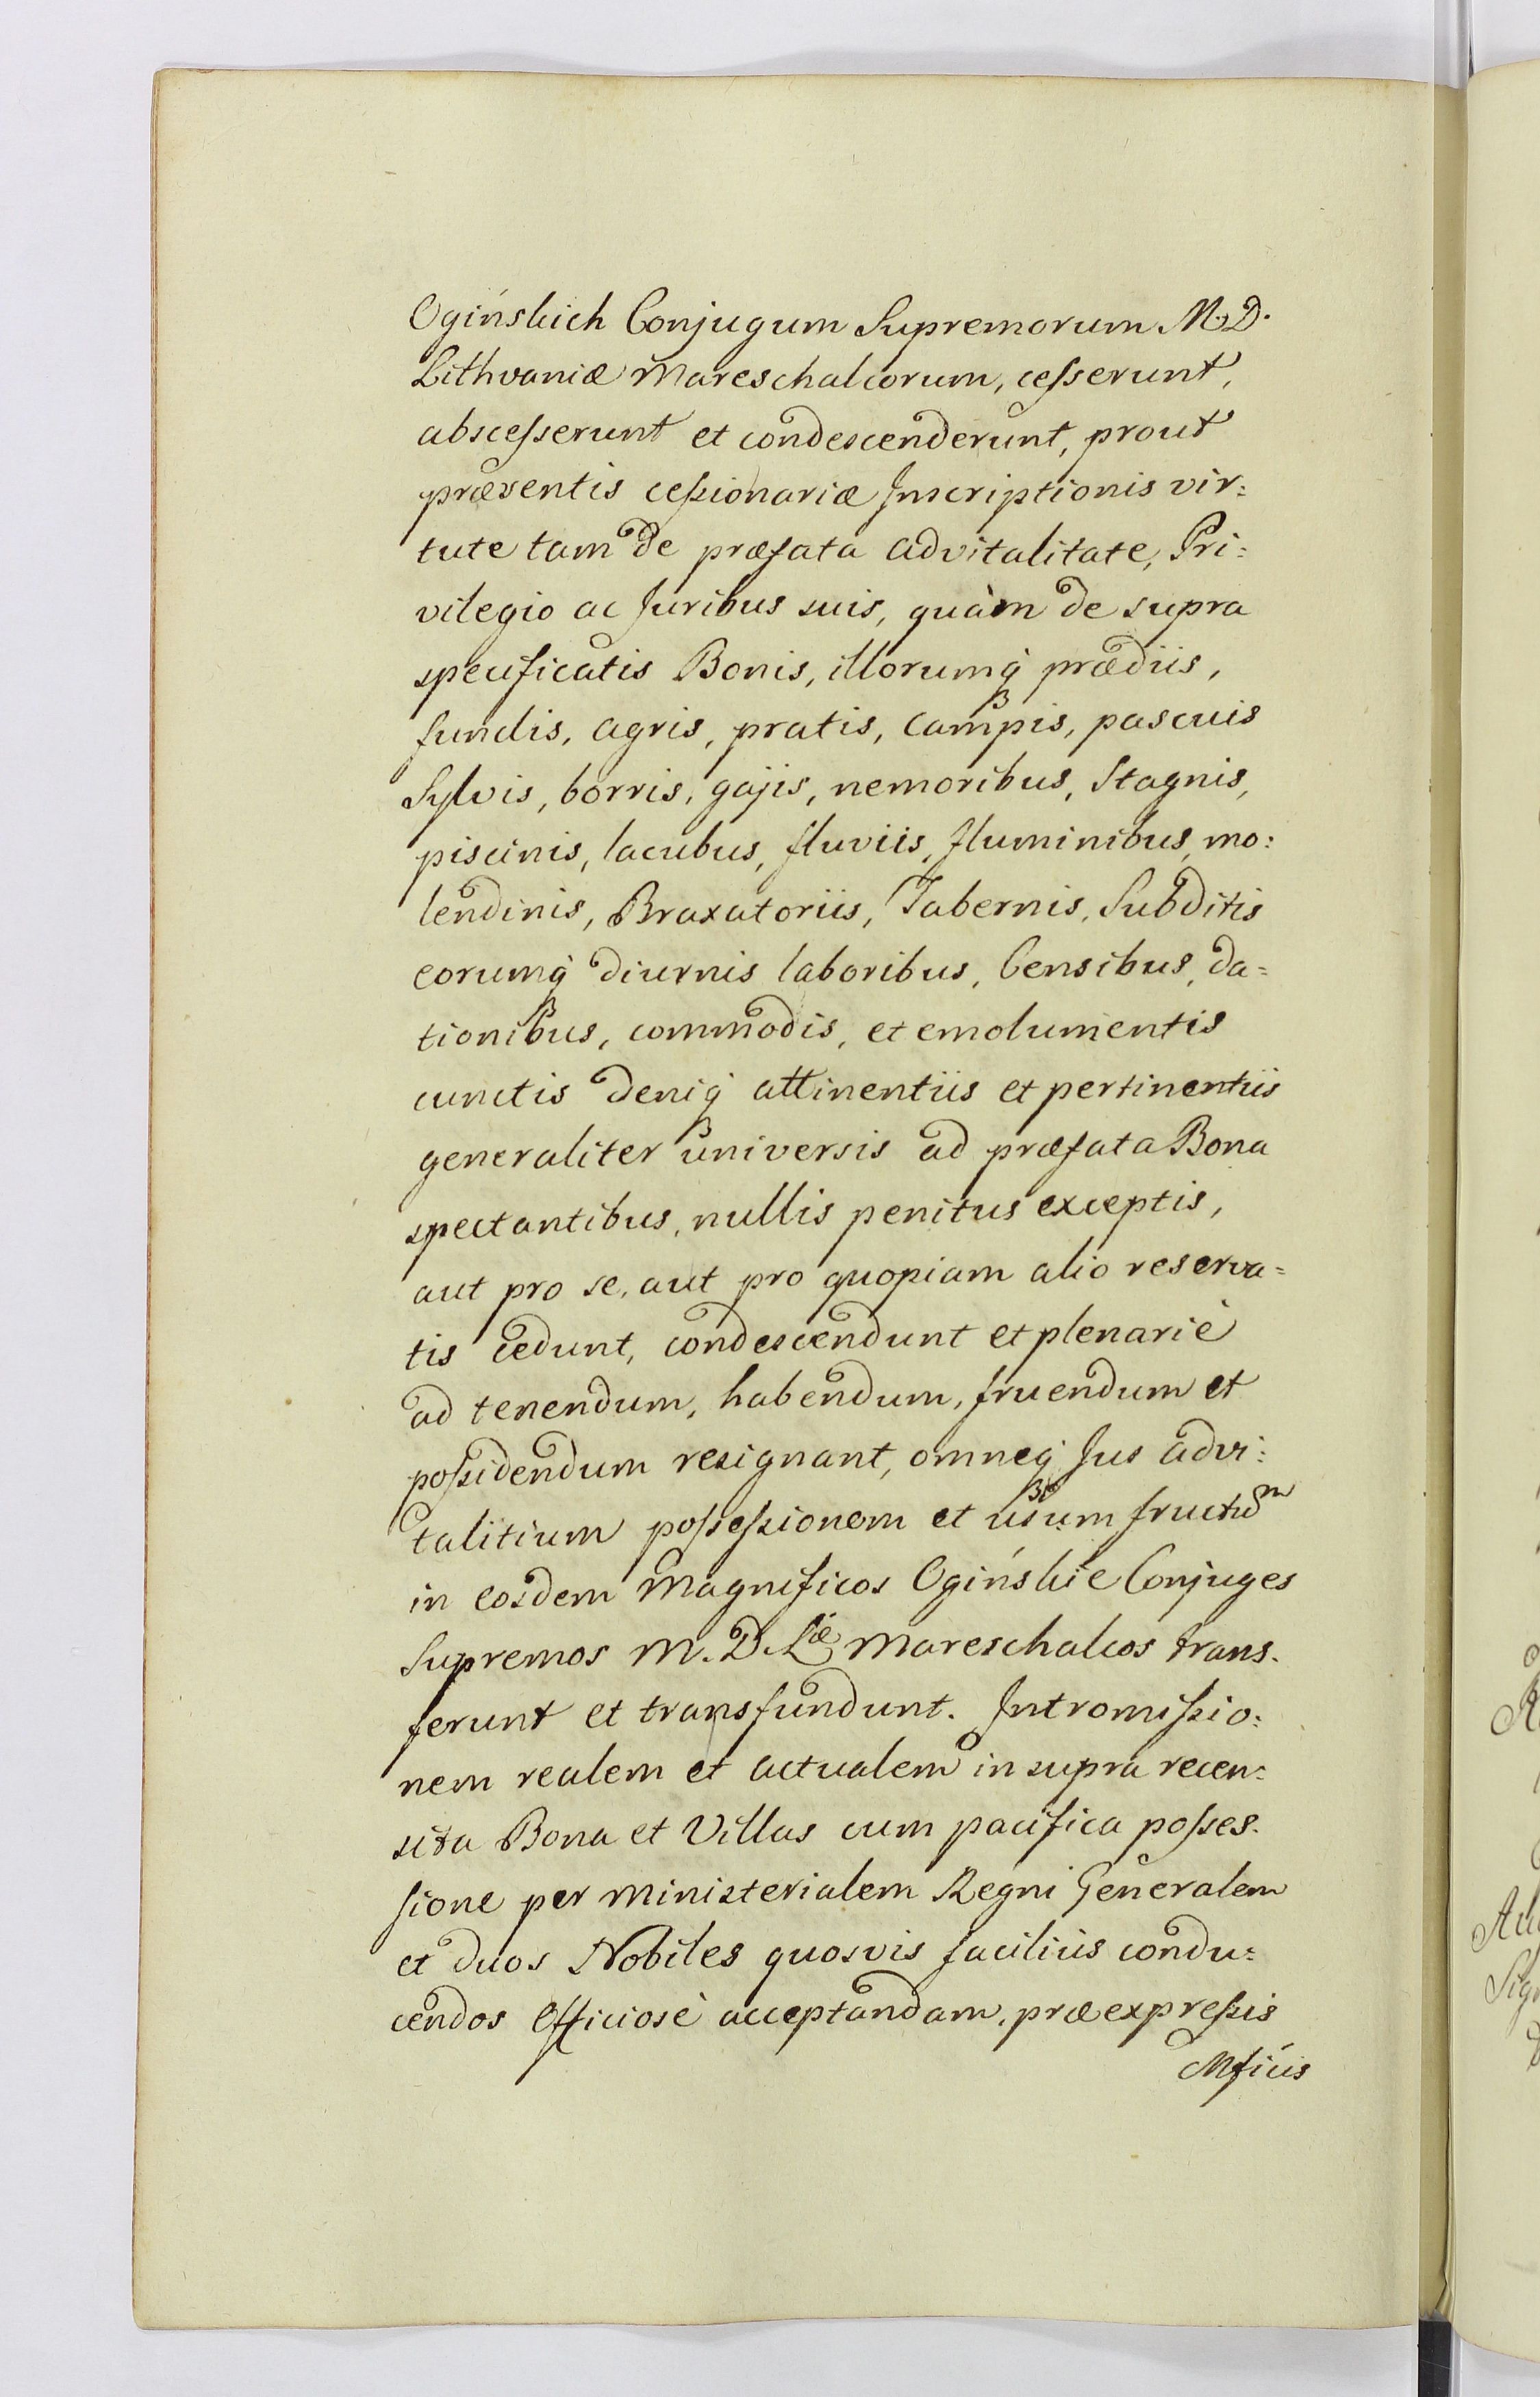 Ogińskich Conjugum Supremorum M. D.
Lithvaniæ Mareschalcorum, cesserunt,
abscesserunt et condescenderunt, prout
præsentis cessionariæ Inscriptionis vir=
tute tam de præfata advitalitate, Pri=
vilegio ac Juribus suis, quàm de supra
specificatis Bonis, illorumq prædiis,
fundis, agris, pratis, campis, pascuis
Sylvis, borris, gajis, nemoribus, Stagnis,
piscinis, lacubus, fluviis, fluminibus, mo=
lendinis, Braxatoriis, Tabernis, Subditis
eorumq diurnis laboribus, Censibus, da=
tionibus, commodis, et emolumentis
cunctis deniq attinentiis et pertinentiis
generaliter universis ad præfata Bona
spectantibus, nullis penitus exceptis,
aut pro se, aut pro quopiam alio reserva=
tis cedunt, condescendunt et plenariè
ad tenendum, habendum, fruendum et
possidendum resignant, omneq Jus advi=
talitium possessionem et usum fructũ
in eosdem Magnificos Ogińskie Conjuges
Supremos M. D. Læ Mareschalcos trans=
ferunt et transfundunt. Intromissio=
nem realem et actualem in supra recen=
sita Bona et Villas cum pacifica posses=
sione per Ministerialem Regni Generalem
et duos Nobiles quosvis faciliùs condu=
cendos Officiosè acceptandam, præexpressis
Mficis